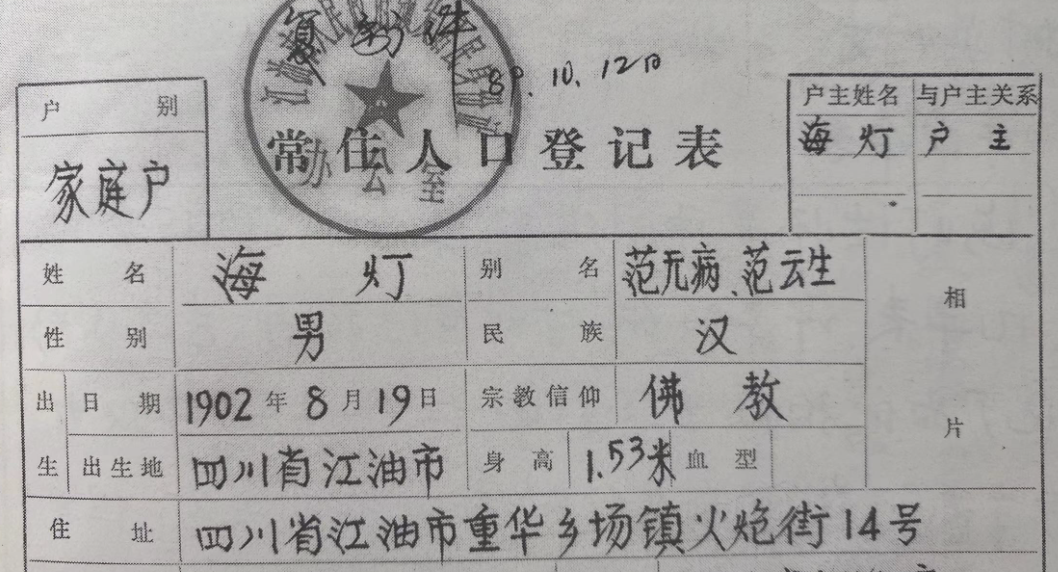 复制件
89.10.12日
常住人口登记表
办公室
户别
家庭户
户主姓名 与户主关系
海灯 户主
姓名 海灯 别名 范无病、范云生
性别 男 民族 汉
出生 日期 1902年8月19日 宗教信仰 佛教
出生地 四川省江油市 身高 1.53米 血型
相片
住址 四川省江油市重华乡场镇火炮街14号